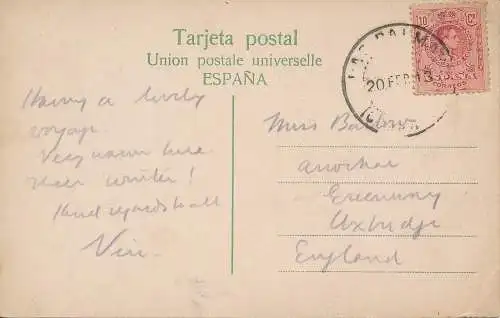 Tarjeta postal
Union postale universelle
ESPAÑA
10 Cs
CORREOS
LAS PALMAS
20 FEB 13
Having a lovely
voyage.
Very warm here
winter!
Kind regards to all
Miss
Greenway
Uxbridge
England